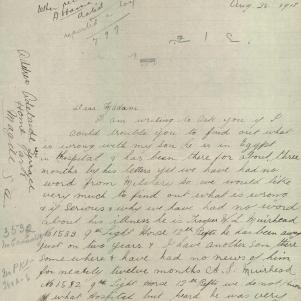 Aug 26 1918
Dear Madam
I am writing to ask you if I
could trouble you to find out what
is wrong with my son he is in Egypt
in Hospital & has been there for about three
months by his letters yet we have had no
word from Military so we would like
very much to find out what is wrong
& if serious & why we have had no word
about his illness he is Trooper Muirhead
No 1533 9th Light Horse 12th Refts he has been away
just on two years & I have another son there
somewhere & have had no news of him
for nearly twelve months Muirhead
No 1532 9th Light Horse 12th Refts we do not
what Hospital but heard he was very
Address Adelaide
Magill S A
3532